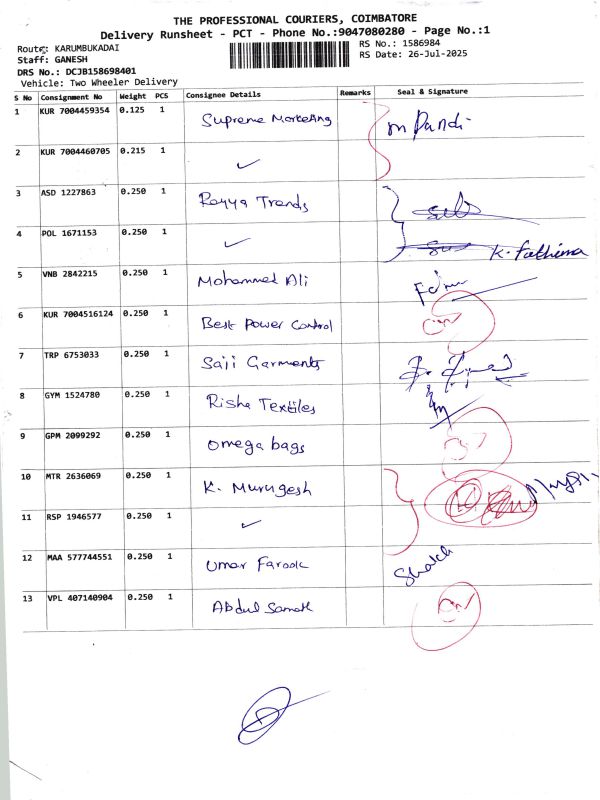 THE PROFESSIONAL COURIERS, COIMBATORE
Delivery Runsheet - PCT - Phone No.:9047080280 - Page No.:1
Route: KARUMBUKADAI
RS No.: 1586984
Staff: GANESH
RS Date: 26-Jul-2025
DRS No.: DCJB158698401
Vehicle: Two Wheeler Delivery
S No Consignment No Weight PCS Consignee Details Remarks Seal & Signature
1 KUR 7004459354 0.125 1 Supreme Marketing m Pandi
2 KUR 7004460705 0.215 1 ✓
3 ASD 1227863 0.250 1 Rayya Trends
4 POL 1671153 0.250 1 ✓ K. Fathima
5 VNB 2842215 0.250 1 Mohammed Ali
6 KUR 7004516124 0.250 1 Best Power Control
7 TRP 6753033 0.250 1 Saii Garments
8 GYM 1524780 0.250 1 Risha Textiles
9 GPM 2099292 0.250 1 Omega bags
10 MTR 2636069 0.250 1 K. Murugesh
11 RSP 1946577 0.250 1 ✓
12 MAA 577744551 0.250 1 Umar Farook
13 VPL 407140904 0.250 1 Abdul Samath